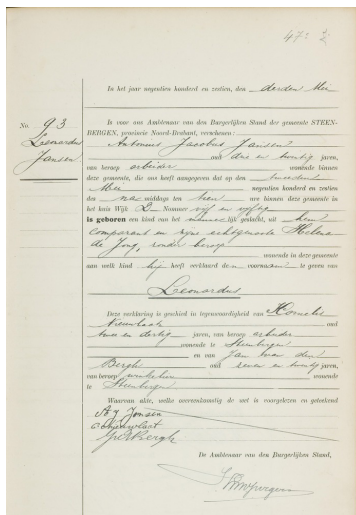 47
In het jaar negentien honderd en zestien, den derden Mei
No. 93
Leonardus
Jansen
Is voor ons Ambtenaar van den Burgerlijken Stand der gemeente STEEN-
BERGEN, provincie Noord-Brabant, verschenen:
Antonius Jacobus Jansen
oud drie en twintig jaren,
van beroep arbeider wonende binnen
deze gemeente, die ons heeft aangegeven dat op den tweeden
Mei negentien honderd en zestien
des na middags ten tien ure binnen deze gemeente in
het huis Wijk Nommer vijf en vijftig
is geboren een kind van het mannelijk geslacht, uit hem
comparant en zijne echtgenoote Helena
de Jong, zonder beroep
wonende in deze gemeente
aan welk kind hij heeft verklaard den voornaam te geven van
Leonardus
Deze verklaring is geschied in tegenwoordigheid van Kornelis
Nieuwlaat oud
twee en dertig jaren, van beroep arbeider
wonende te Steenbergen
en van Jan van den
Bergh oud zeven en twintig jaren,
van beroep winkelier wonende
te Steenbergen
Waarvan akte, welke overeenkomstig de wet is voorgelezen en geteekend
A J Jansen
C Nieuwlaat
Bergh
De Ambtenaar van den Burgerlijken Stand,